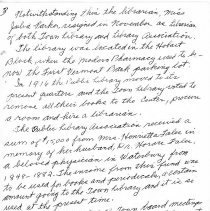 3 Notwithstanding this the librarian Miss
Julia Parker, resigned in November as librarian
of both Town Library and Library Association.
The library was located in the Hobart
Block where the modern Pharmacy was to be
now the First Vermont Bank parking lot.
In 1916 the Public Library moved to its
present quarters and the Town Library voted to
remove all their books to the Center, procure
a room and hire a librarian.
The Public Library Association received a
sum of $5,000 from Mrs. Henrietta Fales in
memory of her husband, Dr. Horace Fales,
a beloved physician in Waterbury from
1848-1882. The income from this fund was
to be used for books and periodicals, a certain
amount going to the Town Library and it is so
used at the present time.
Town Board meeting